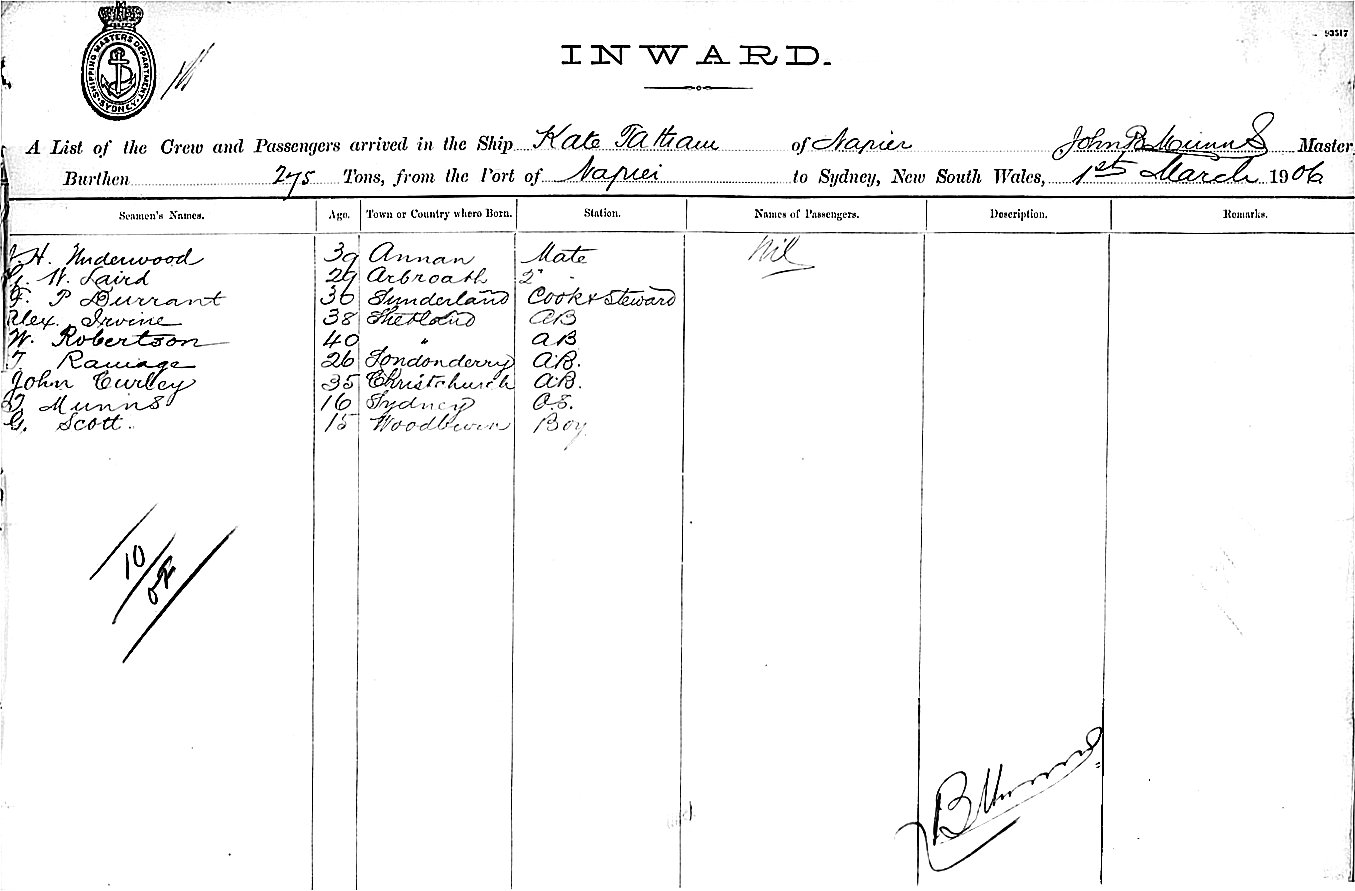 SHIPPING MASTERS DEPARTMENT SYDNEY
93517
INWARD.
A List of the Crew and Passengers arrived in the Ship Kate Tatham of Napier John B Munns Master
Burthen 275 Tons, from the Port of Napier to Sydney, New South Wales, 1st March 1906
Seamen's Names. Age. Town or Country where Born. Station. Names of Passengers. Description. Remarks.
H. Underwood 39 Annan Mate Nil
G. W. Laird 29 Arbroath 2"
F. P Durrant 36 Sunderland Cook & Steward
Alex. Irvine 38 Shetland AB
W. Robertson 40 " AB
T Ramage 26 Londonderry A.B.
John Curley 35 Christchurch A.B.
Munns 16 Sydney O.S.
G. Scott. 15 Woodburn Boy
10
B Munns